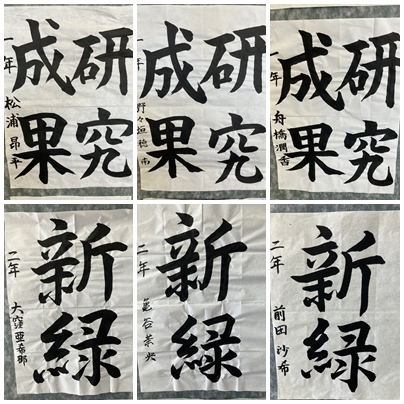 研究
成果
一年 松浦昴平
研究
成果
一年 野々垣穂南
研究
成果
一年 舟橋潤香
新緑
二年 大窪亜希那
新緑
二年 亀谷茉央
新緑
二年 前田沙希